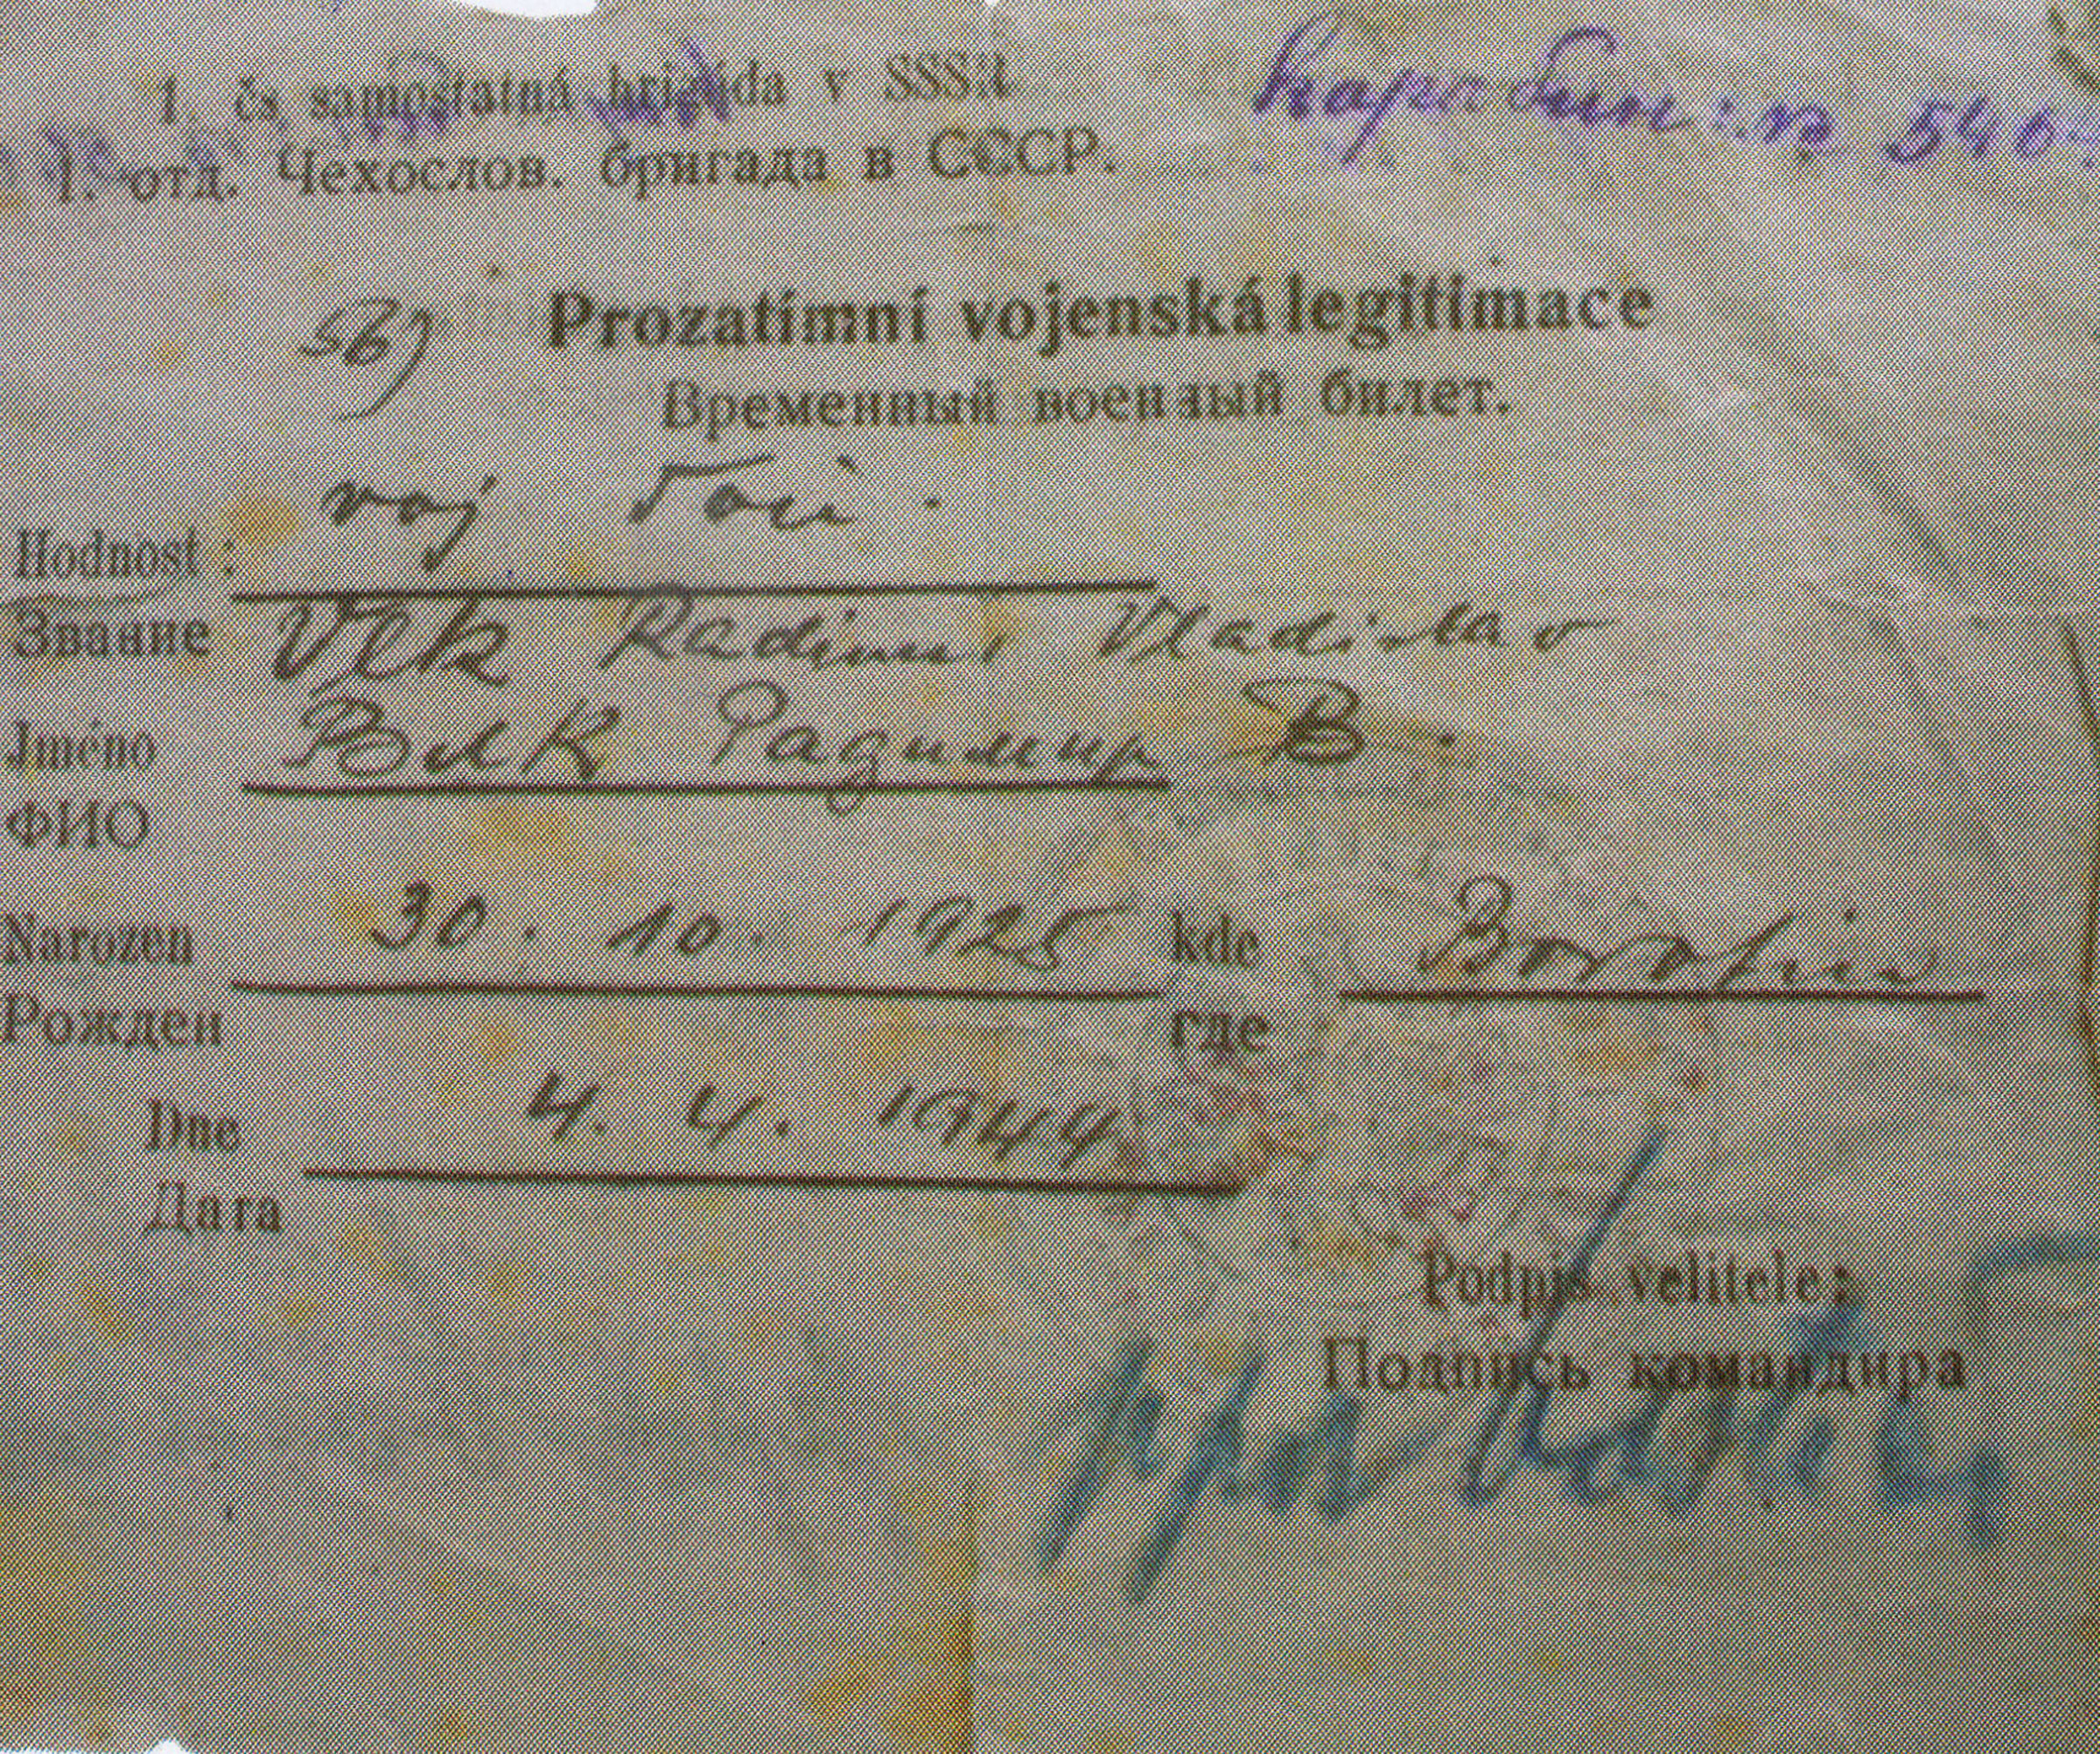 1. čs samostatná brigáda v SSSR
Карабин: № 540
1. отд. Чехослов. бригада в СССР.
Prozatímní vojenská legitimace
Временный военный билет.
voj
Hodnost :
Звание
Vlk Radimir Vladislav
Jméno
Влк Радимир В.
ФИО
Narozen 30. 10. 1925 kde
Рожден где
Dne 4. 4. 1944
Дата
Podpis velitele:
Подпись командира